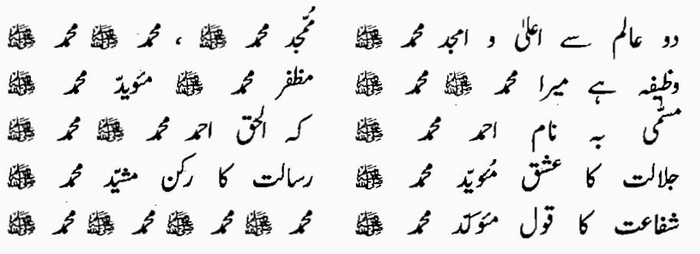 دو عالم سے اعلیٰ و امجد محمد ﷺ مُمجّد محمد ﷺ ، محمد ﷺ محمد ﷺ
وظیفہ ہے میرا محمد ﷺ محمد ﷺ مظفر محمد ﷺ مؤیدّ محمد ﷺ
مسمّٰی بہ نام احمد محمد ﷺ کہ الحق احمد محمد ﷺ محمد ﷺ
جلالت کا عشق مُویدّ محمد ﷺ رسالت کا رکن مشیّد محمد ﷺ
شفاعت کا قول مؤکدّ محمد ﷺ محمد ﷺ محمد ﷺ محمد ﷺ محمد ﷺ